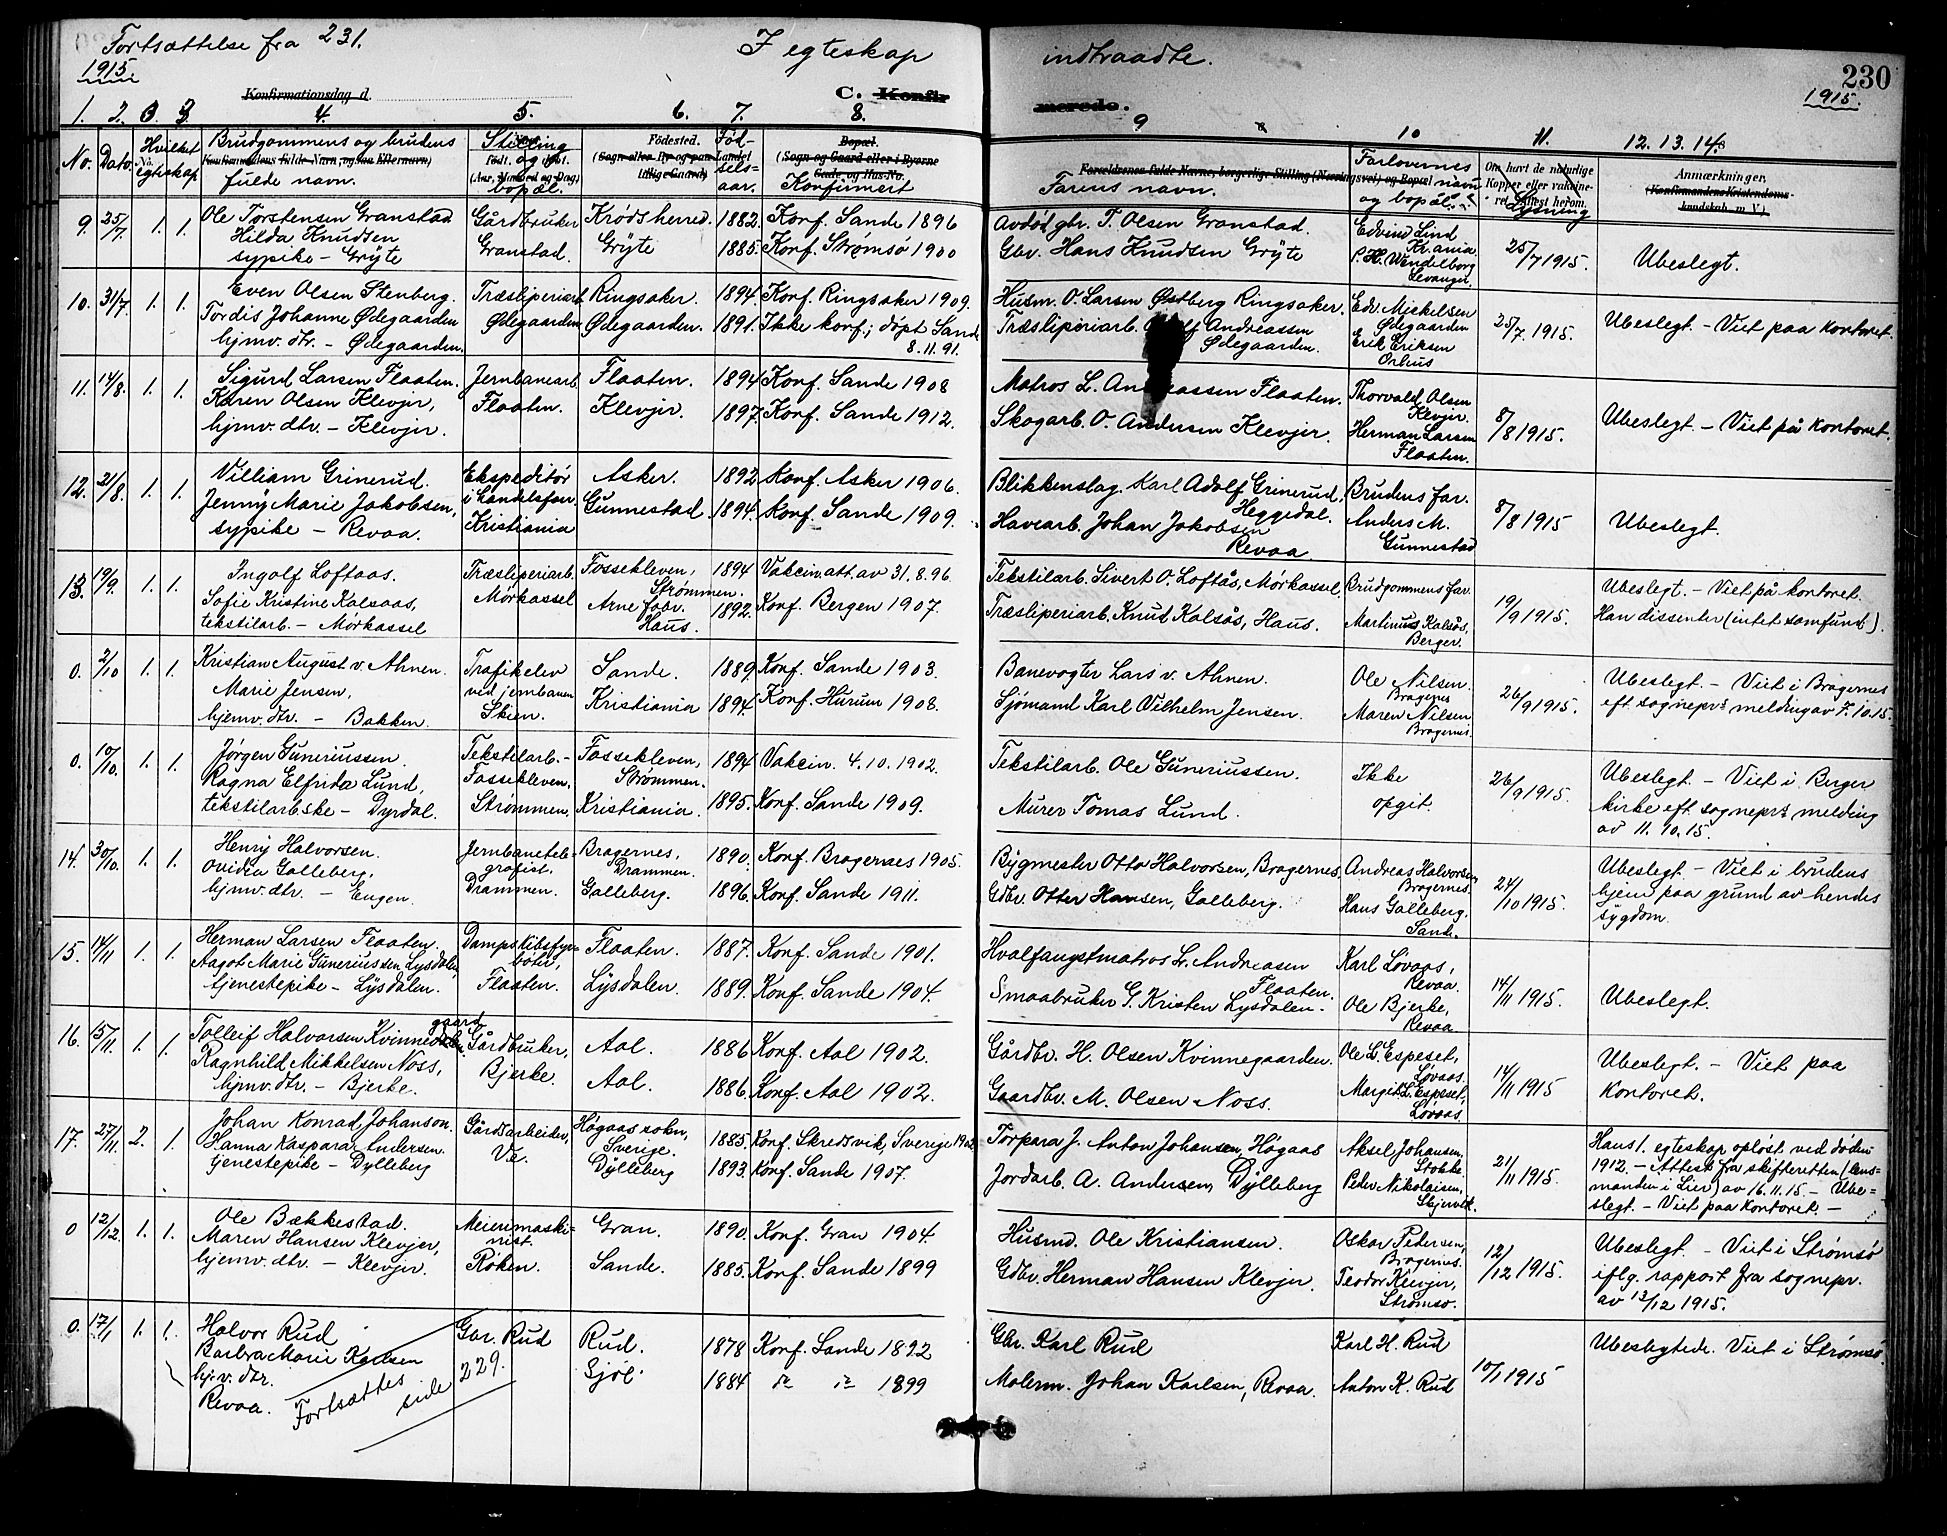 Fortsættelse fra 231.
I egteskap indtraadte.
230
1915
1915.
Konfirmationsdag d.
C. Konfirmerede.
1. 2. 3. 4. 5. 6. 7. 8. 9 10 11. 12. 13. 14.
No. Dato. Hvilket egteskap. Brudgommens og brudens fulde navn. Stilling og bopæl. Födested. Fødselsaar. Konfirmert Farens navn. Forlovernes navn og bopæl. Lysning Anmærkninger.
9. 25/7 1. 1. Ole Torstensen Granstad Gårdbruker Krødsherred. 1882. Konf. Sande 1896 Avdød gbr. T. Olsen Granstad. Edvind Lind
Hilda Knudsen Kr.ania
sypike - Gryte Granstad. Gryte 1885. Konf. Strømsø 1900 Gbr. Hans Knudsen Gryte P. H. Wendelborg Levanger. 25/7 1915. Ubeslegt.
10. 31/7. 1. 1. Even Olsen Stenberg. Træsliperiarb. Ringsaker. 1894. Konf. Ringsaker 1909. Husm. O. Larsen Østberg Ringsaker. Edv. Mickelsen Ødegaarden
Tordis Johanne Ødegaarden Ødegaarden Ødegaarden. 1891. Ikke konf; døpt Sande 8.11.91. Træsliperiarb. Andreassen Ødegaarden. Erik Eriksen Orhus 25/7. 1915. Ubeslegt. - Viet paa kontoret.
hjmv. dtr. - Ødegaarden.
11. 14/8. 1. 1. Sigurd Larsen Flaaten. Jernbanearb. Flaaten. 1894 Konf. Sande 1908 Matros L. Andreassen Flaaten. Thorvald Olsen Klevjer.
Karen Olsen Klevjer, Flaaten. Klevjer. 1897. Konf. Sande 1912. Skogarb. O. Andersen Klevjer. Herman Larsen Flaaten. 8/8 1915. Ubeslegt. - Viet på kontoret.
hjmv. dtr. - Klevjer.
12. 21/8. 1. 1. William Grinerud. Ekspeditör Asker. 1892 Konf. Asker 1906. Blikkenslag. Karl Adolf Grinerud, Heggedal. Brudens far.
Jenny Marie Jakobsen, i Landelsforr. Gunnestad 1894. Konf. Sande 1909. Havearb. Johan Jakobsen Revaa. Anders M. Gunnestad 8/8 1915 Ubeslegt.
sypike - Revaa. Kristiania
13. 19/9. 1. 1. Ingolf Loftaas. Træsliperiarb. Fossekleven, Strømmen. 1894 Vakcin.att. av 31.8.96. Tekstilarb. Sivert O. Loftås, Mørkassel. Brudgommens far. Ubeslegt. - Viet på kontoret.
Sofie Kristine Kalsaas, Mörkassel Arne fabr. Haus. 1892. Konf. Bergen 1907. Træsliperiarb. Knut Kalsås, Haus. Martinus Kalsås, Berger. 19/9 1915. Han dissenter (intet samfund).
tekstilarb. - Mørkassel
0. 2/10 1. 1. Kristian August v. Ahnen. Trafikelev Sande. 1889. Konf. Sande 1903. Banevogter Lars v. Ahnen. Ole Nilsen. Bragernes Ubeslegt. - Viet i Bragernes
Marie Jensen, ved jernbanen Kristiania 1894. Konf. Hurum 1908. Sjømand Karl Vilhelm Jensen. Maren Nilsen Bragernes. 26/9 1915. eft. sognepr's melding av 7.10.15.
hjemv. dtr. - Bakken. Skien.
0. 10/10. 1. 1. Jørgen Guneriussen. Tekstilarb.- Fossekleven, Strømmen. 1894 Vakcin. 4.10.1902. Tekstilarb. Ole Guneriussen. Ikke Ubeslegt. - Viet i Berger
Ragna Elfrida Lund, Fossekleven, 26/9 1915. kirke eft. sognepr's melding
tekstilarbske - Dyrdal. Strømmen. Kristiania. 1895. Konf. Sande 1909. Murer Tomas Lund. opgit. av 11.10.15.
14. 30/10. 1. 1. Henry Halvorsen. Jernbanetelegrafist, Bragernes, Drammen. 1890. Konf. Bragernes 1905. Bygmester Otto Halvorsen, Bragernes. Andreas Halvorsen, Bragernes. Ubeslegt. - Viet i brudens
Ovidia Galleberg, 24/10 1915. hjem paa grund av hendes
hjmv. dtr. - Engen. Drammen. Galleberg. 1896. Konf. Sande 1911. Gdbr. Otter Hansen, Galleberg. Hans Galleberg. Sande. sygdom.
15. 14/11 1. 1. Herman Larsen Flaaten. Dampskibsfyrbøter, Flaaten. 1887. Konf. Sande 1901. Hvalfangstmatros L. Andreasen Flaaten. Karl Løvaas, Revaa.
Aagot Marie Guneriussen Lysdalen
tjenestepike - Lysdalen. Flaaten. Lysdalen. 1889. Konf. Sande 1904. Smaabruker G. Kristen Lysdalen. Ole Bjerke, Revaa. 14/11 1915. Ubeslegt.
16. 15/11. 1. 1. Tolleif Halvorsen Kvinnegaarden Gårdbruker, Aal. 1886 Konf. Aal 1902. Gårdbr. H. Olsen Kvinnegaarden. Ole L. Espeset, Løvaas. Ubeslegt. - Viet paa
Ragnhild Mikkelsen Noss, Bjerke. Aal. 1886 Konf. Aal 1902. Gaardbr. M. Olsen Noss. Margit L. Espeset, Løvaas 14/11 1915 kontoret.
hjmv. dtr. - Bjerke.
17. 27/11. 2. 1. Johan Konrad Johanson. Gårdsarbeider, Högaas sokn, Sverige. 1885. Konf. Skredsvik, Sverige 1902 Torpara J. Anton Johansen, Högaas Aksel Johansen, Stokke Hans 1. egteskap opløst ved døden
Hanna Kaspara Andersen. Ve. 1912. - Attest fra skifteretten (lens-
tjenestepike - Dylleberg Dylleberg 1893 Konf. Sande 1907. Jordarb. A. Andersen, Dylleberg Peder Nikolaisen, Skjervik. 21/11 1915. manden i Lier) av 16.11.15. - Ube-
slegt. - Viet paa kontoret. -
0 12/12. 1. 1. Ole Bækkestad. Meierimaskinist. Gran. 1890. Konf. Gran 1904. Husmd. Ole Kristiansen. Oskar Pedersen, Bragernes. Ubeslegt. - Viet i Strømsø
Maren Hansen Klevjer, Røken. Sande. 1885. Konf. Sande 1899 Gdbr. Herman Hansen Klevjer. Teodor Klevjer, Strømsø. 12/12 1915. iflg. rapport fra sognepr.
hjemv. dtr. - Klevjer. av 13/12 1915.
0. 17/1 1. 1. Halvor Rud Gbr. Rud Rud. 1878 Konf. Sande 1892 Gbr. Karl Rud Karl H. Rud Ubeslegtede. Viet i Strømsø.
Barbra Marie Karlsen
hj. v. dtr. Sjøl 1884 do do 1899 Malerm. Johan Karlsen, Revaa. Anton K. Rud 10/1 1915
Revaa. Fortsættes side 229.